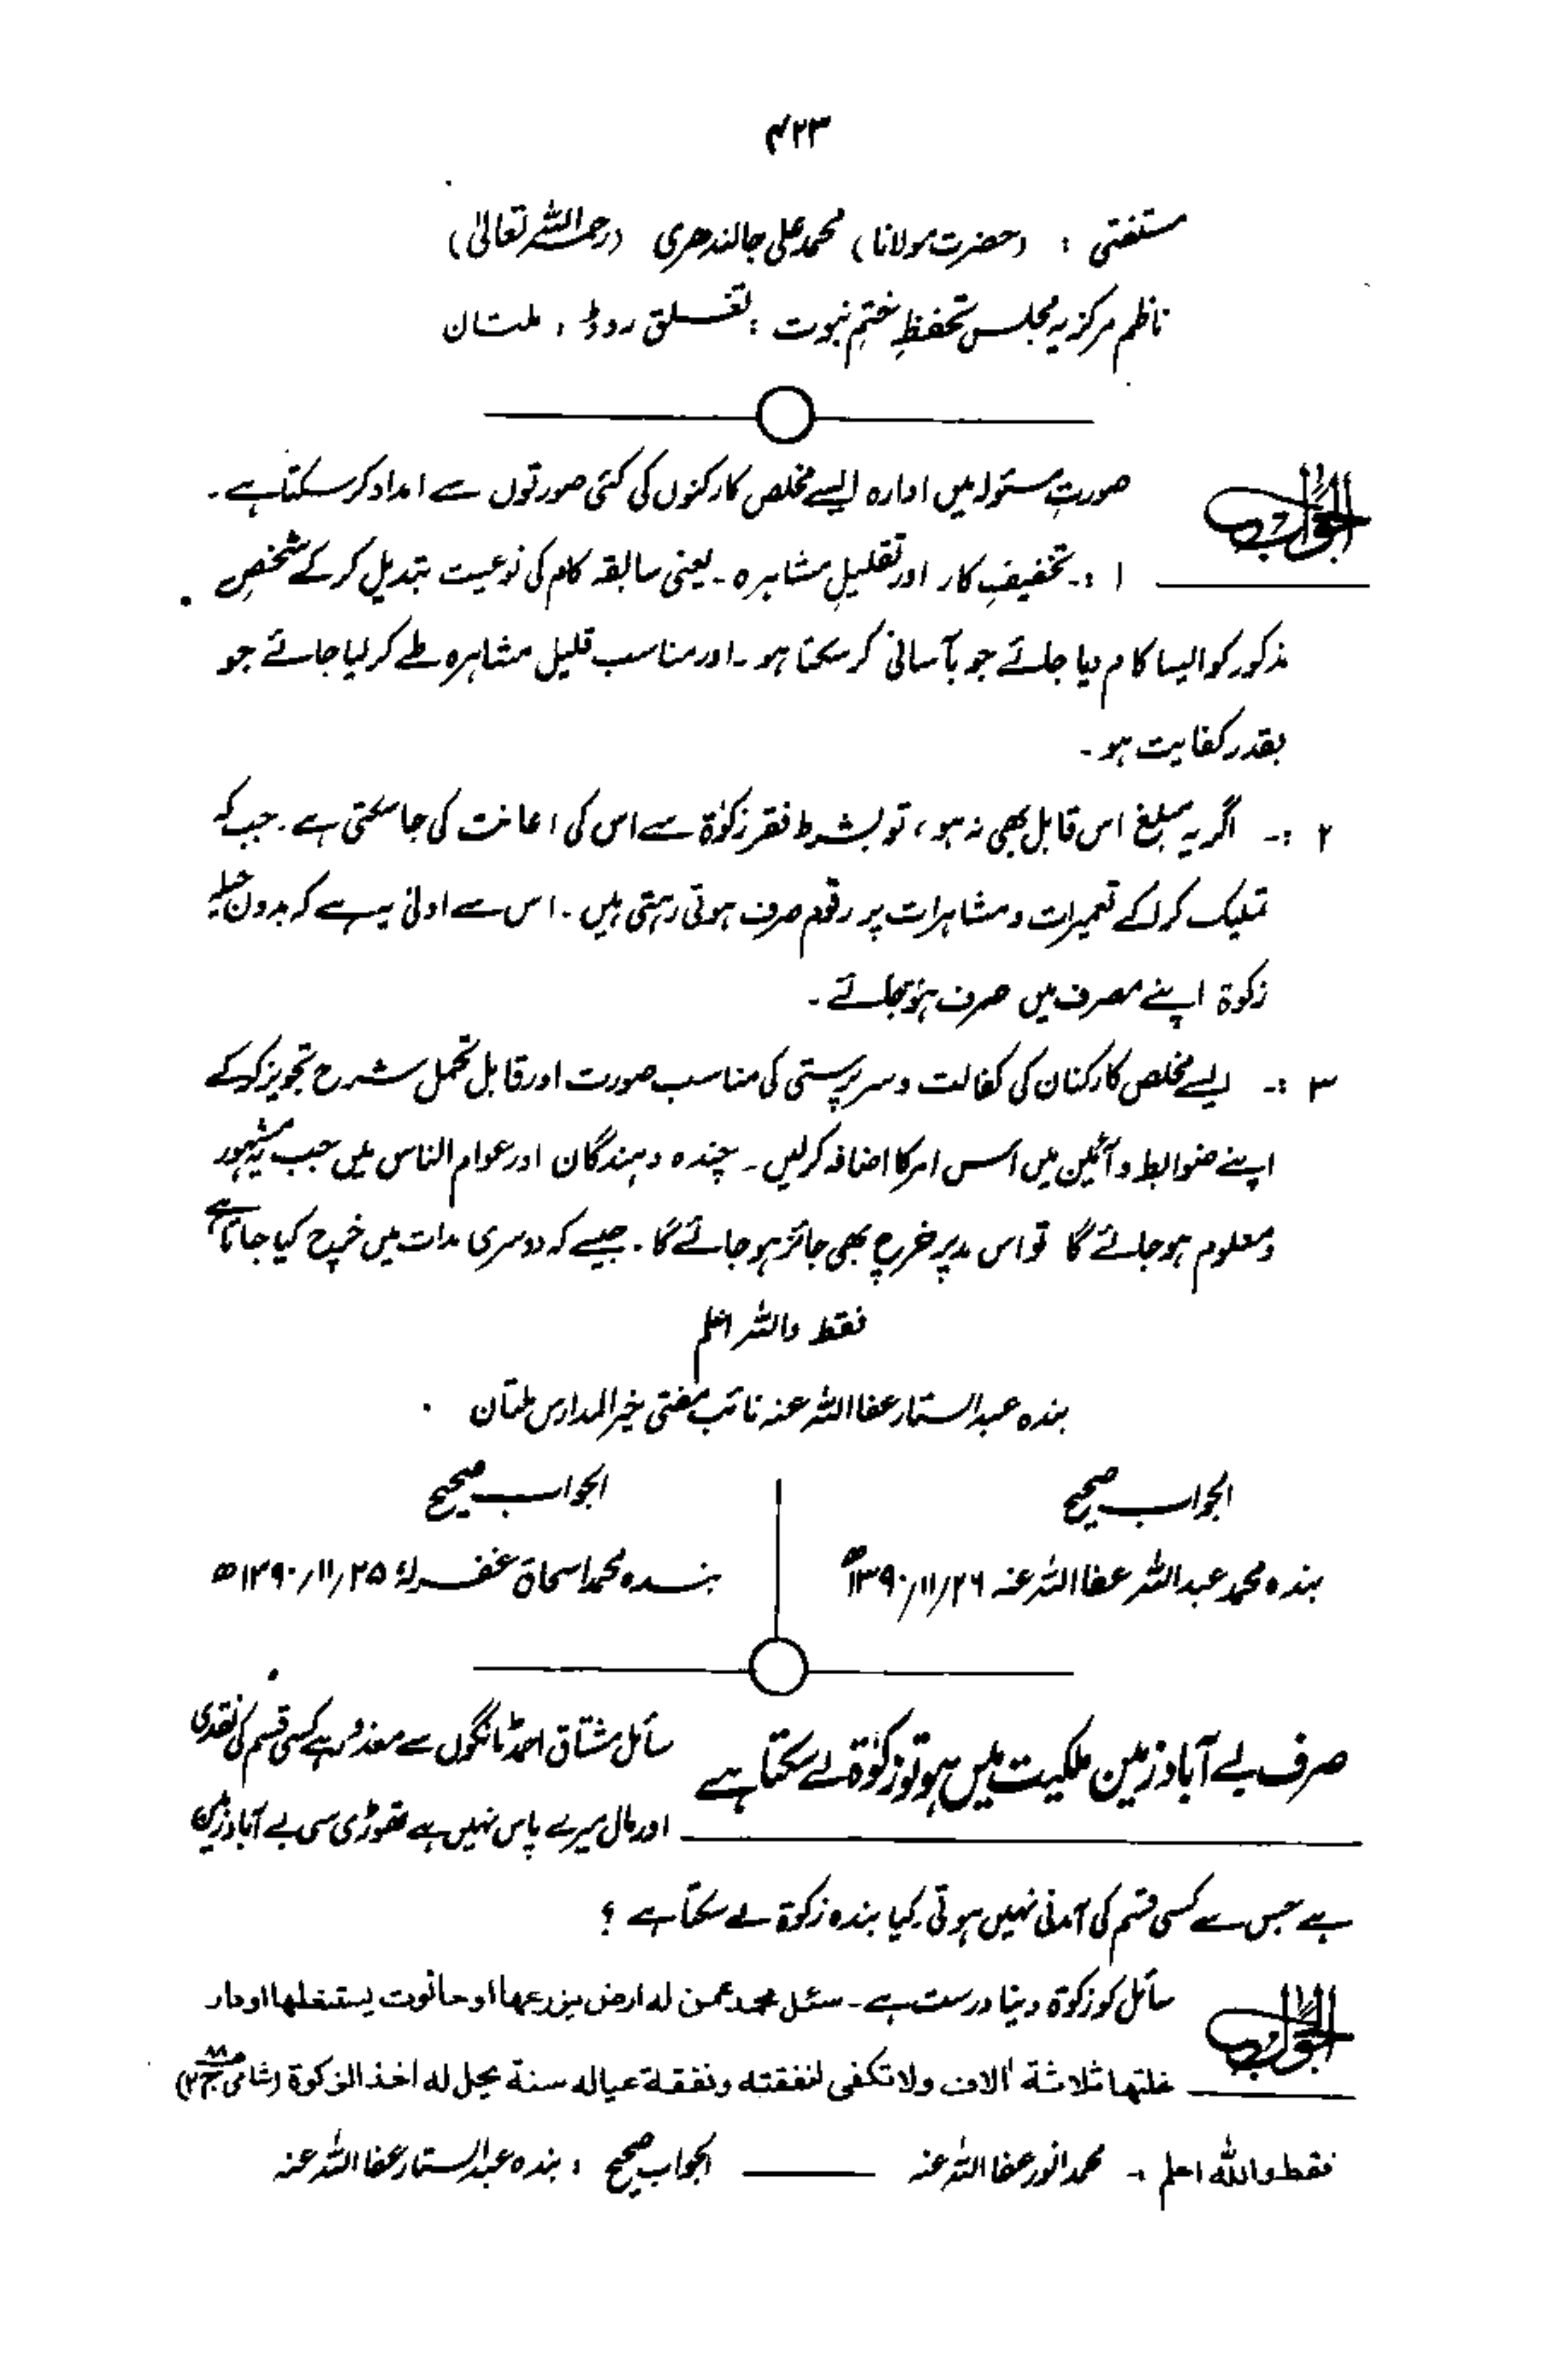 ۴۲۳
مستفتی : (حضرت مولانا) محمد علی جالندھری (رحمہ اللہ تعالیٰ)
ناظم مرکزیہ مجلس تحفظِ ختمِ نبوت : تغلق روڈ ، ملتان
الجواب صورتِ مسئولہ میں ادارہ ایسے مخلص کارکنوں کی کئی صورتوں سے امداد کر سکتا ہے ۔
۱ :۔ تخفیفِ کار اور تقلیلِ مشاہرہ ۔ یعنی سابقہ کام کی نوعیت تبدیل کر کے شخصِ
مذکور کو ایسا کام دیا جائے جو بآسانی کر سکتا ہو ۔ اور مناسب قلیل مشاہرہ طے کر لیا جائے جو
بقدر کفایت ہو ۔
۲ :۔ اگر یہ مبلغ اس قابل بھی نہ ہو ، تو بشرط فقر زکوٰۃ سے اس کی اعانت کی جا سکتی ہے ۔ جب کہ
تملیک کرا کے تعمیرات و مشاہرات پر رقوم صرف ہوتی رہتی ہیں ۔ اس سے اولیٰ یہ ہے کہ بدون حیلہ
زکوٰۃ اپنے مصرف میں صرف ہو جائے ۔
۳ :۔ ایسے مخلص کارکنان کی کفالت و سرپرستی کی مناسب صورت اور قابل تحمل شرح تجویز کر کے
اپنے ضوابط و آئین میں اس امر کا اضافہ کر لیں ۔ چندہ دہندگان اور عوام الناس میں جب یہ مشہور
و معلوم ہو جائے گا تو اس مد پر خرچ بھی جائز ہو جائے گا ۔ جیسے کہ دوسری مدات میں خرچ کیا جاتا ہے
فقط واللہ اعلم
بندہ عبدالستار عفا اللہ عنہ نائب مفتی خیر المدارس ملتان
الجواب صحیح
بندہ محمد عبداللہ عفا اللہ عنہ ۲۶/۱۱/۱۳۹۰ھ
الجواب صحیح
بندہ محمد اسحاق غفر لہٗ ۲۵/۱۱/۱۳۹۰ھ
صرف بے آباد زمین ملکیت میں ہو تو زکوٰۃ لے سکتا ہے
سائل مشتاق احمد ٹانگوں سے معذور ہے کسی قسم کی نقدی
اور مال میرے پاس نہیں ہے تھوڑی سی بے آباد زمین
ہے جس سے کسی قسم کی آمدنی نہیں ہوتی ۔ کیا بندہ زکوٰۃ لے سکتا ہے ؟
الجواب سائل کو زکوٰۃ دینا درست ہے ۔ سئل محمد عمن لہ ارض یزرعھا او حانوت یستغلھا او دار
غلتھا ثلاثۃ آلاف ولا تکفی لنفقتہ ونفقۃ عیالہ سنۃ یحل لہ اخذ الزکوۃ (شامی ج۲)
فقط واللہ اعلم :۔ محمد انور عفا اللہ عنہ ــــــــ الجواب صحیح : بندہ عبدالستار عفا اللہ عنہ